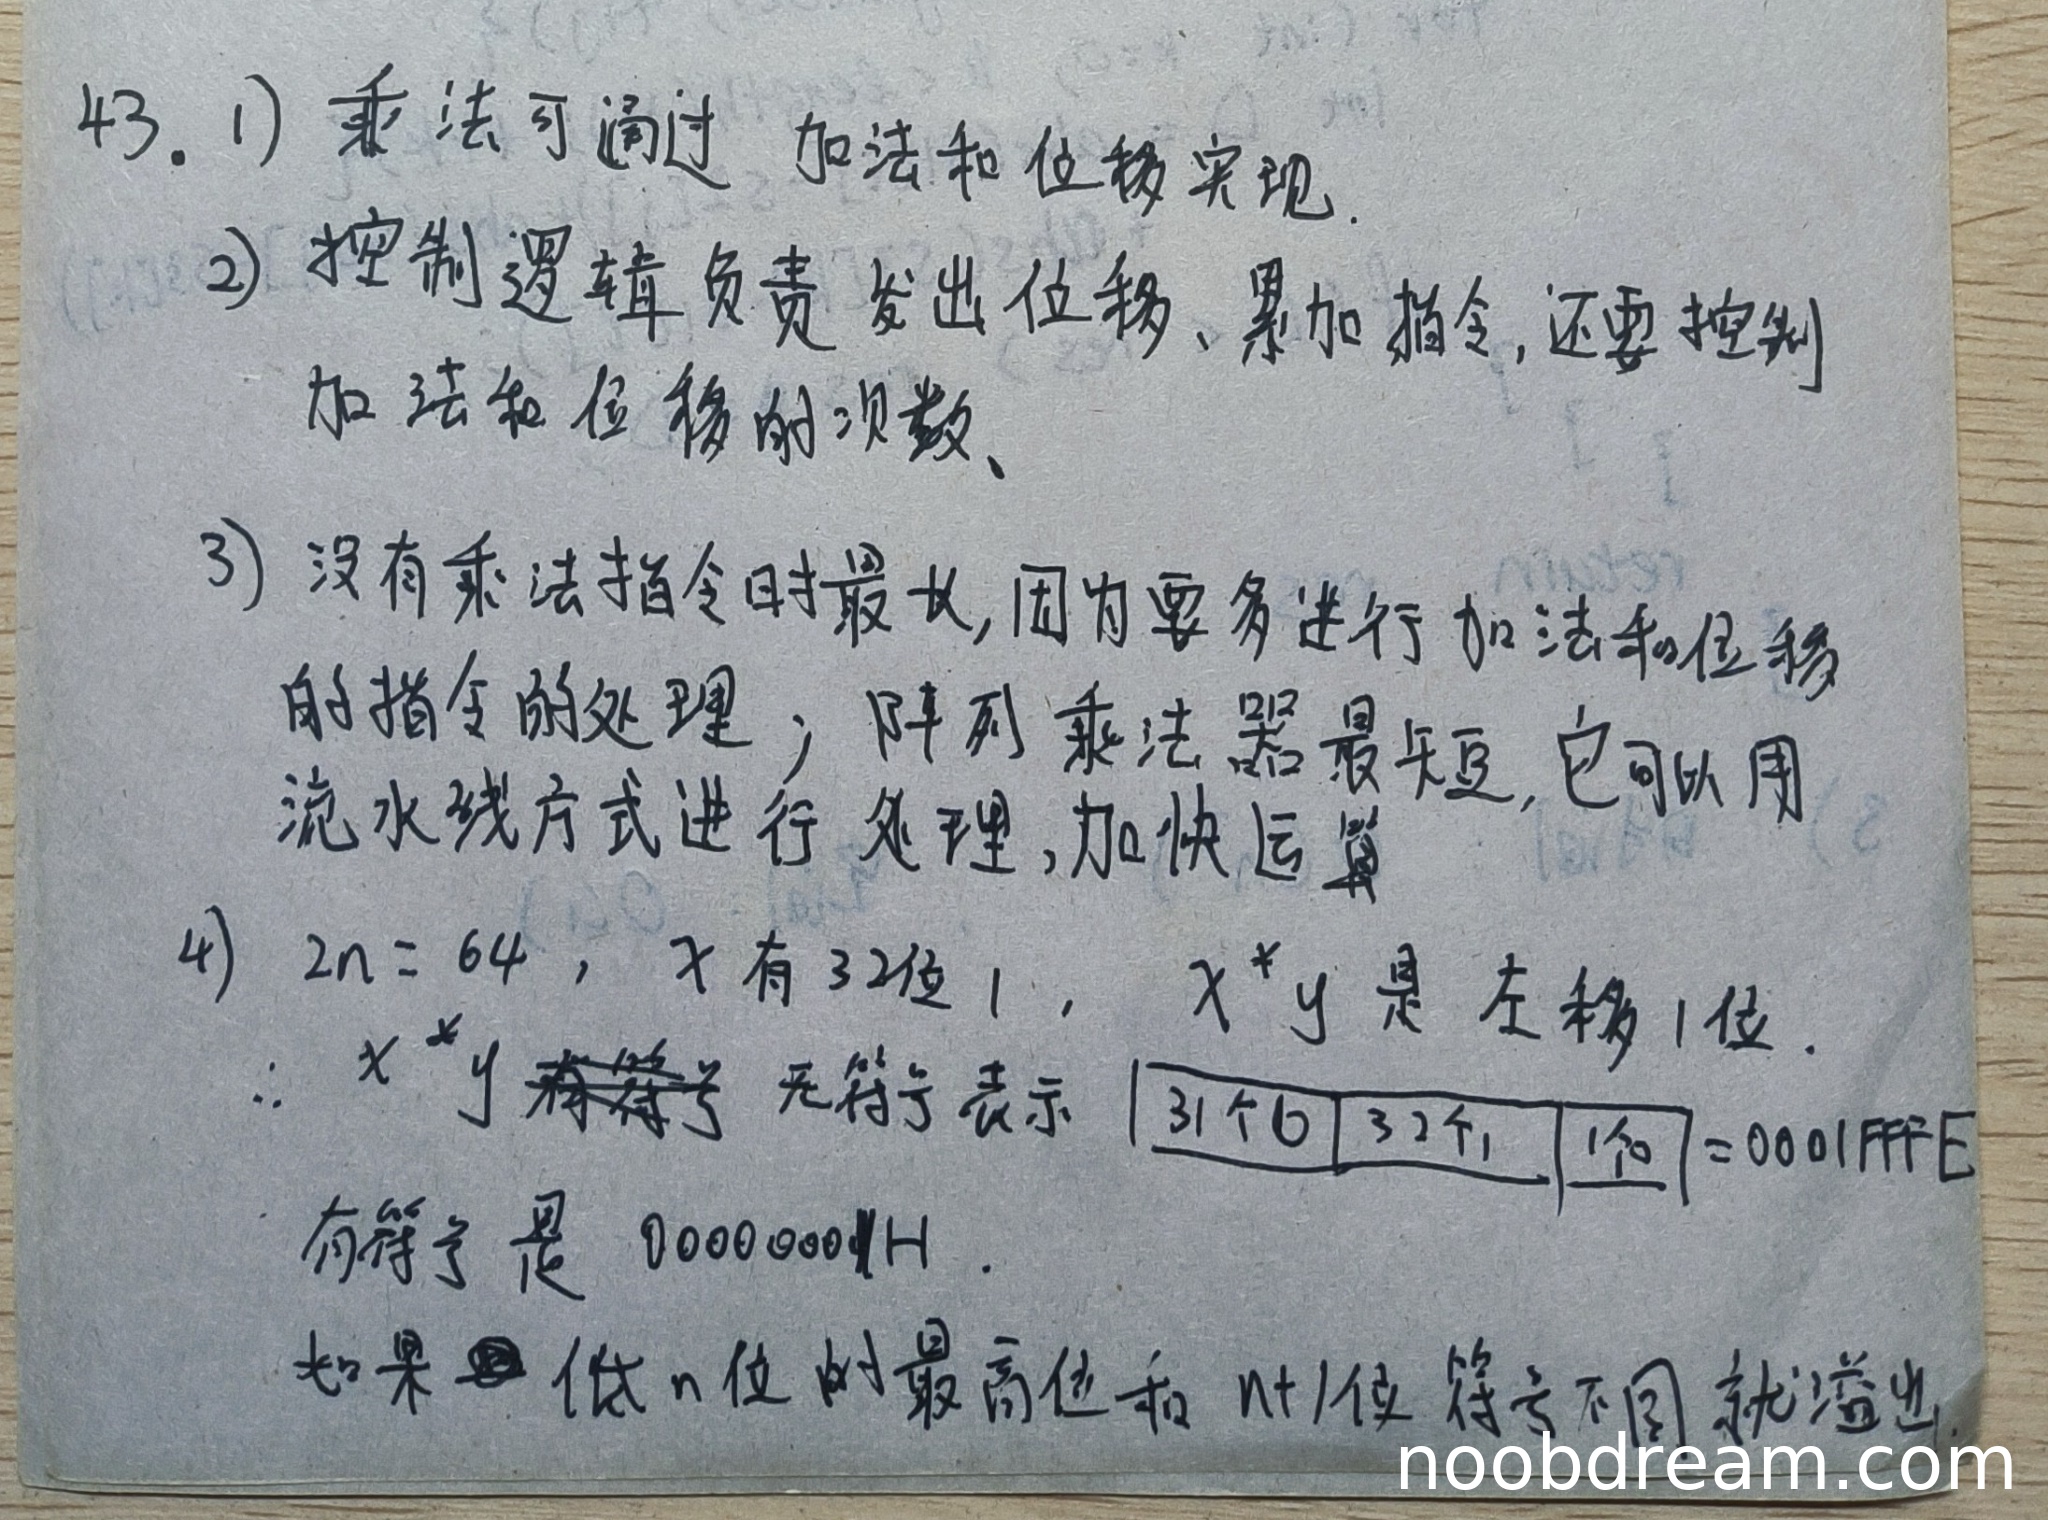 43. 1) 乘法可通过 加法和位移实现.
2) 控制逻辑负责发出位移、累加指令,还要控制
加法和位移的次数、
3) 没有乘法指令时最长,因为要多进行加法和位移
的指令的处理; 阵列乘法器最短,它可以用
流水线方式进行处理,加快运算
4) 2n = 64, x有32位1, x*y是左移1位.
∴ x*y 无符号表示 31个0 32个1 1个0 = 0001FFFE
有符号是 00000001H.
如果 低n位的最高位和n+1位符号不同就溢出.
noobdream.com